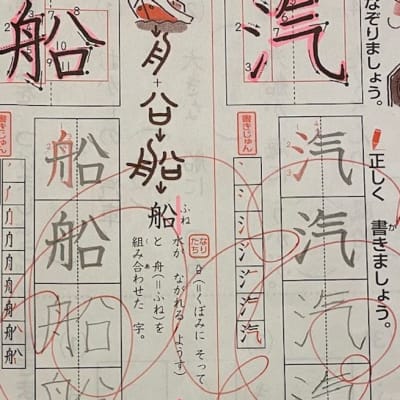 なぞりましょう。
正しく 書きましょう。
か
汽
汽
汽
汽
汽
書きじゅん
汽
なりたち
㕣(=くぼみに そって
水が ながれる ようす)
と 舟(=ふね)を
組み合わせた 字。
あ
船
ふね
船
船
船
船
船
船
書きじゅん
船